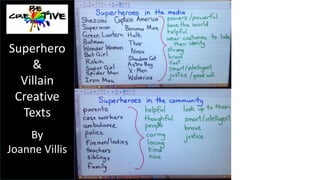 BE
CREATIVE
Superhero
&
Villain
Creative
Texts
By
Joanne Villis
Superheroes in the media
Shazam Captain America
Superman Banana Man
Green Lantern Hulk
Batman Thor
Wonder Woman Nova
Bat Girl Shadow Cat
Robin Astro Boy
Super Girl X-Men
Spider Man Wolverine
Iron Man
powers/powerful
save the world
helpful
wear costumes to hide
their identity
strong
brave
fast
smart/intelligent
justice/good will
Superheroes in the community
parents helpful look up to them
case workers thoughtful smart/intelligent
ambulance people brave
police caring justice
fireman/ladies loving
teachers kind
siblings nice
family